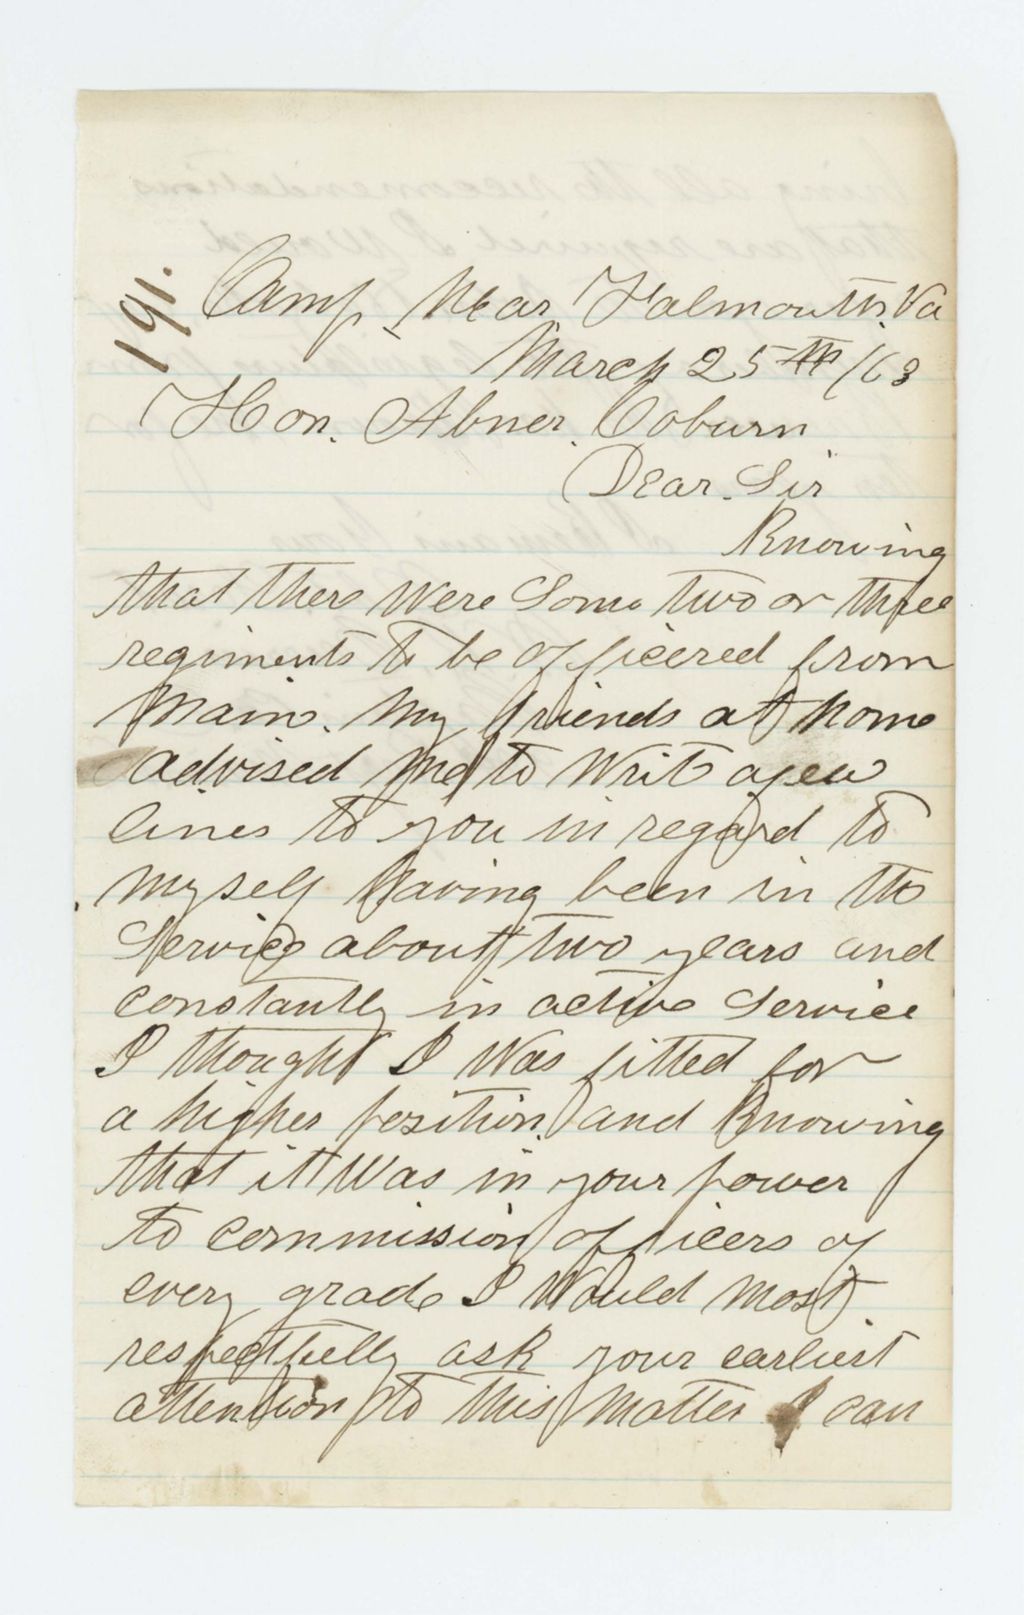 191.
Camp Near Falmouth. Va
March 25th /63
Hon. Abner. Coburn
Dear. Sir
Knowing
that there were Some two or three
regiments to be officered from
Maine. My friends at home
advised me to write a few
lines to you in regard to
myself Having been in the
Service about two years and
constantly in active Service
I thought I was fitted for
a higher position and Knowing
that it was in your power
to commission officers of
every grade I Would most
respectfully ask your earliest
attention to this matter I can